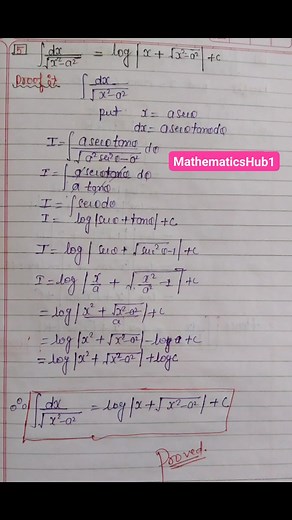 5 ∫dx/√x²-a² = log|x + √x²-a²| + c
Proof it ∫dx/√x²-a²
put x = a secθ
dx = a secθ tanθ dθ
I = ∫a secθ tanθ/√a² sec²θ-a² dθ
MathematicsHub1
I = ∫a secθ tanθ/a tanθ dθ
I = ∫secθ dθ
I = log|secθ + tanθ| + c
I = log|secθ + √sec²θ-1| + c
I = log|x/a + √x²/a² -1| + c
= log|x² + √x²-a²/a| + c
= log|x² + √x²-a²| - log a + c
= log|x² + √x²-a²| + log c
∴ ∫dx/√x²-a² = log|x + √x²-a²| + c
Proved.